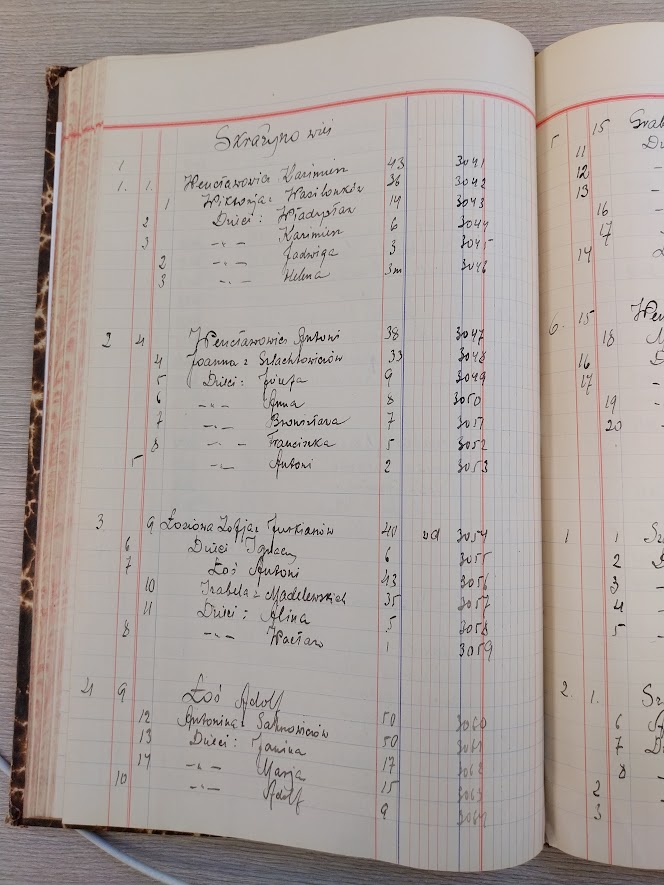 Skrażyno wieś
1
1. 1. Wencławowicz Kazimierz 43 3041
1 Wiktorja z Wasilonków 36 3042
Dzieci: Władysław 14 3043
2 -„- Kazimierz 6 3044
3 -„- Jadwiga 3 3045
2 -„- Helena 3m 3046
3
2 4 Wencławowicz Antoni 38 3047
4 Joanna z Szlachtowiczów 33 3048
5 Dzieci: Józefa 9 3049
6 -„- Anna 8 3050
7 -„- Bronisława 7 3051
8 -„- Franciszka 5 3052
5 -„- Antoni 2 3053
3 9 Łosiowa Zofja z 40 wd 3054
6 Dzieci Ignacy 6 3055
7 Łoś Antoni 43 3056
10 Izabela z Madelewskich 35 3057
11 Dzieci: Alina 5 3058
8 -„- Wacław 1 3059
4 9 Łoś Adolf
12 Antonina z Sakowiczów 50 3060
13 Dzieci: Janina 50 3061
14 -„- Marja 17 3062
10 -„- Adolf 15 3063
9 3064
5 15 Grab
11
12
13
16
17
14
6. 15
18
16
17
19
20
1 1
2
3
4
5
2. 1.
6
7
8
2
3